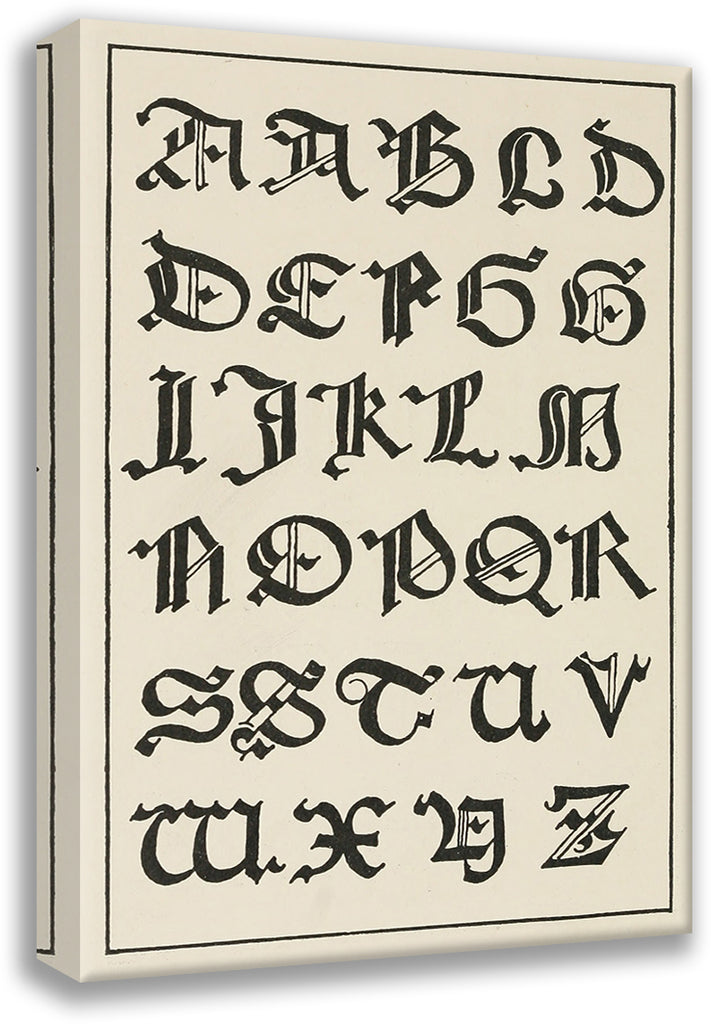 A A B C D
D E F G G
I J K L M
N O P Q R
S S T U V
W X Y Z